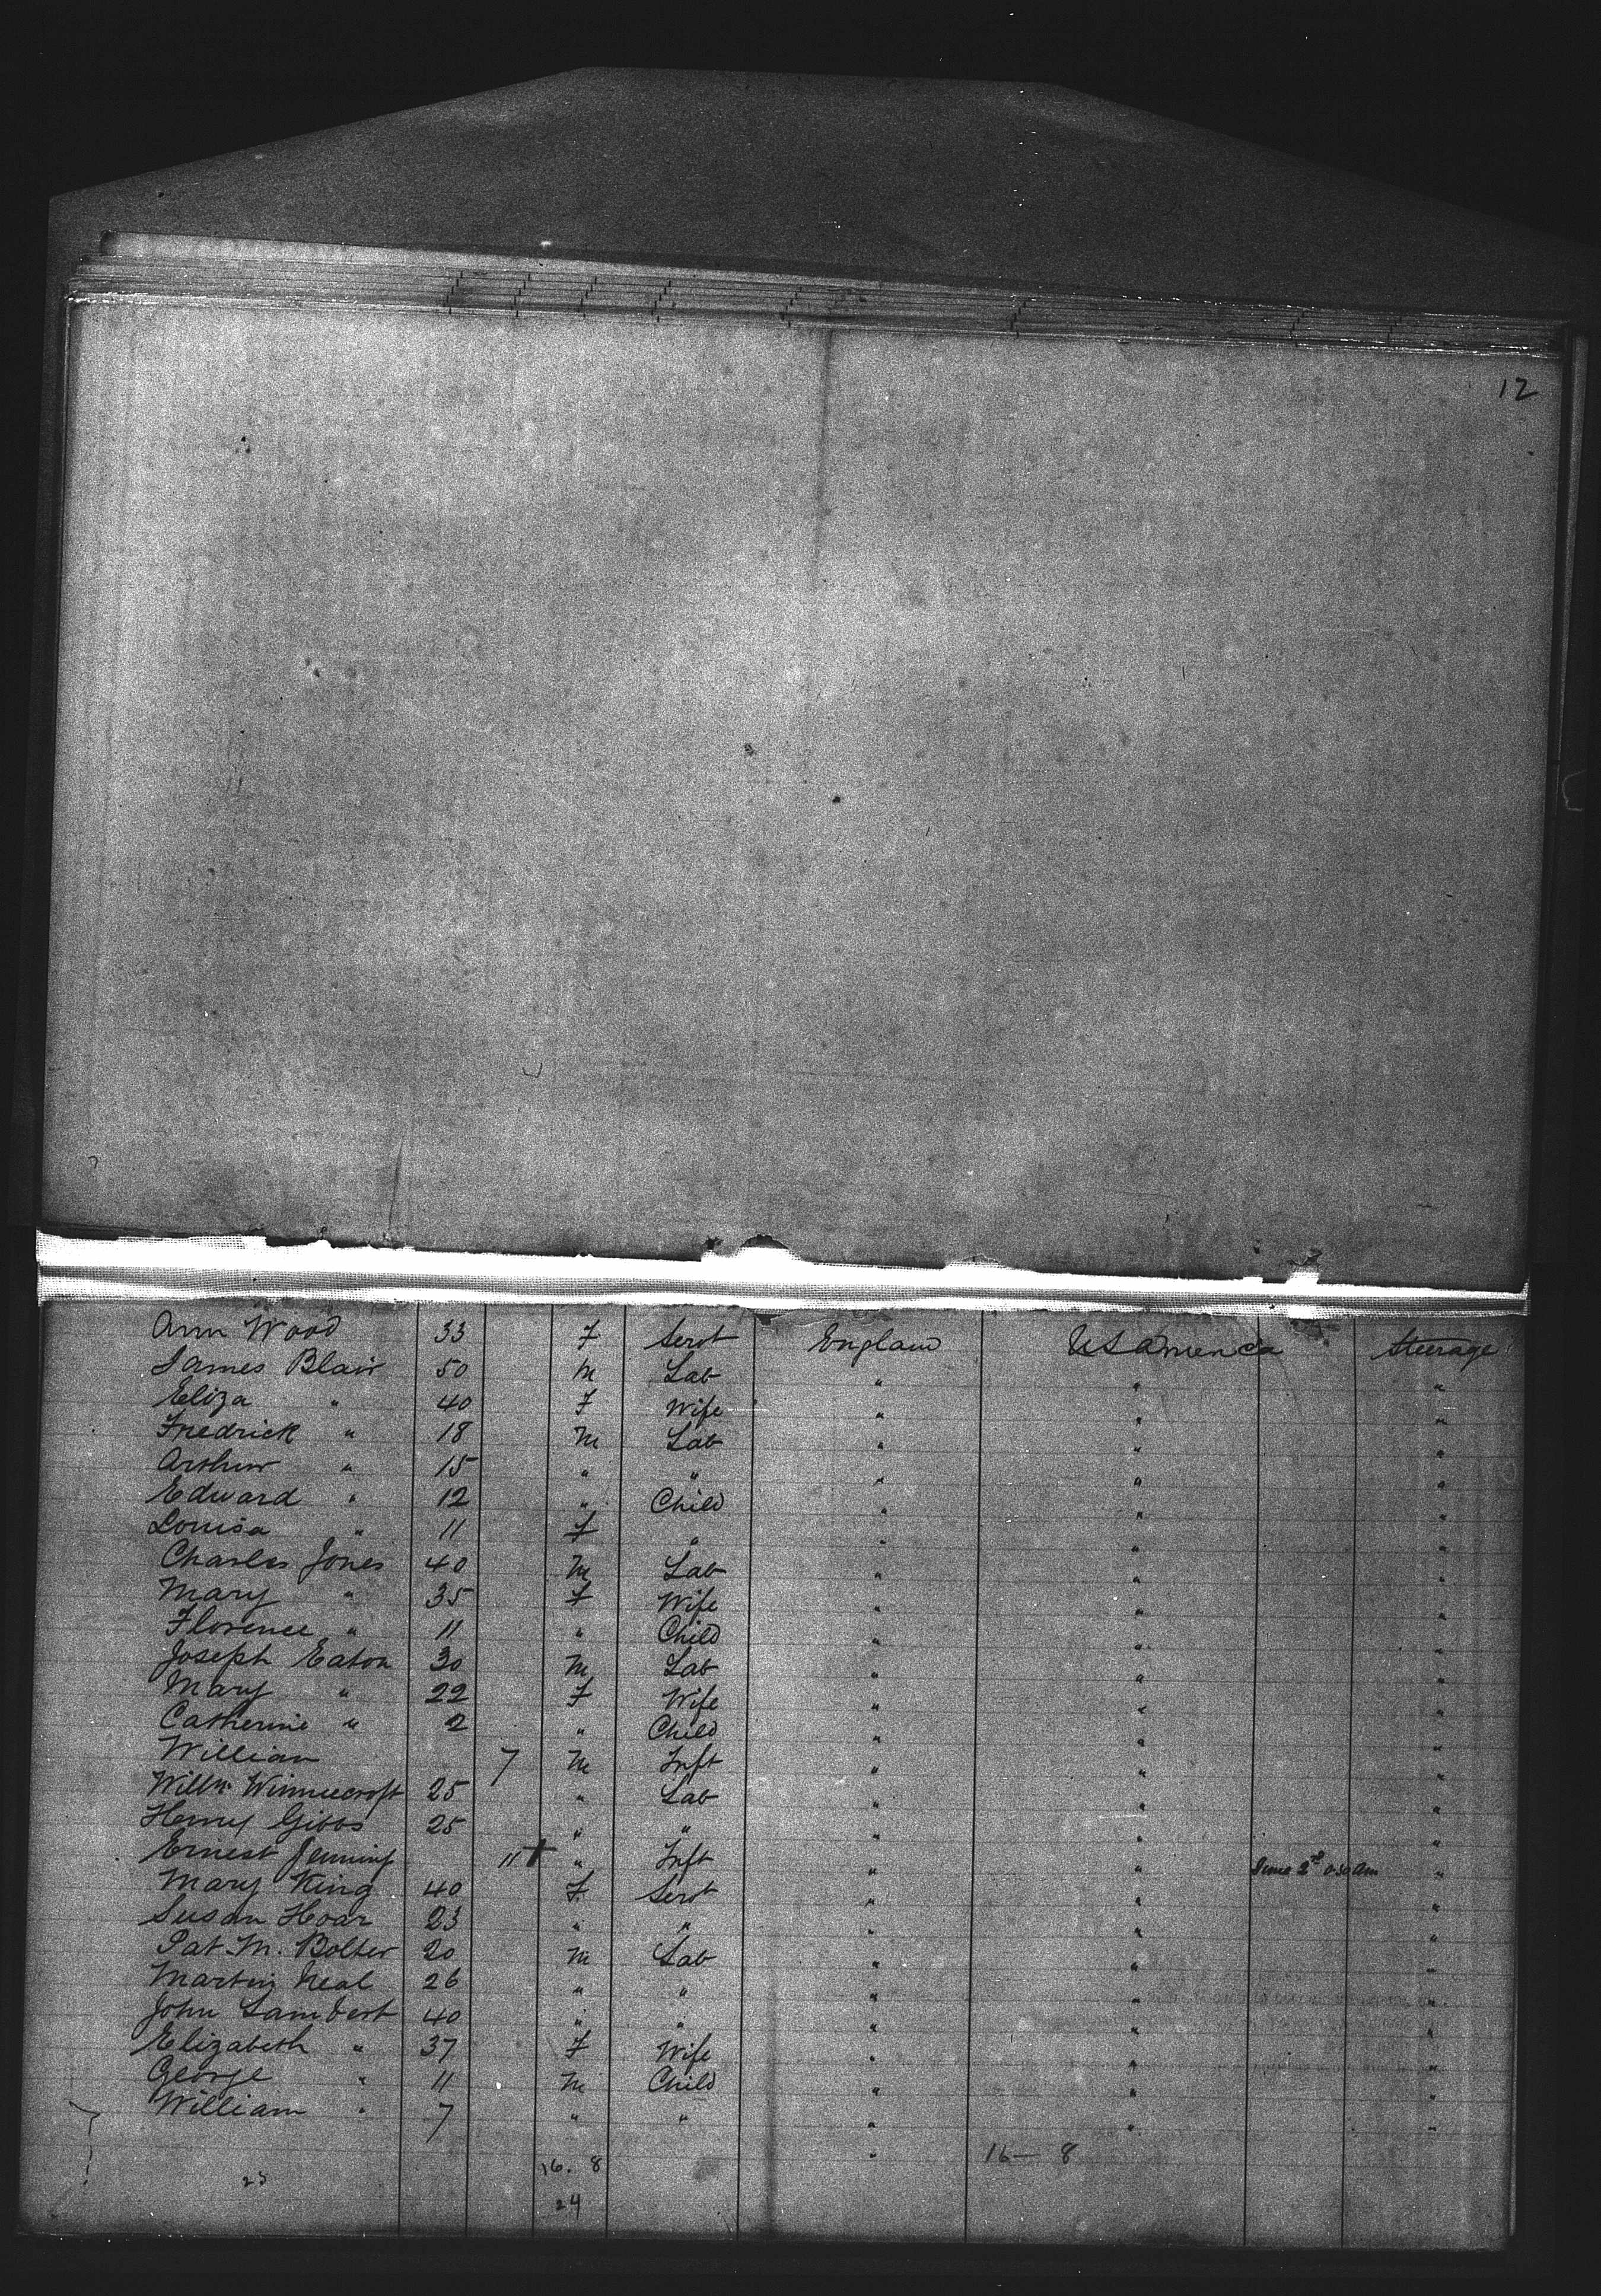 12
Ann Wood 33 F Servt England U S America Steerage
James Blair 50 M Lab " " "
Eliza " 40 F Wife " " "
Fredrick " 18 M Lab " " "
Arthur " 15 " " " " "
Edward " 12 " Child " " "
Louisa " 11 F " " " "
Charles Jones 40 M Lab " " "
Mary " 35 F Wife " " "
Florence " 11 " Child " " "
Joseph Eaton 30 M Lab " " "
Mary " 22 F Wife " " "
Catherine " 2 " Child " " "
William 7 M Inft " " "
Willm 25 " Lab " " "
Henry Gibbs 25 " " " " "
Ernest Jenning 11 + " Inft " " June 2nd "
Mary King 40 F Servt " " "
Susan Hoar 23 " " " " "
Pat M. Bolter 20 M Lab " " "
Martin Neal 26 " " " " "
John Lambert 40 " " " " "
Elizabeth " 37 F Wife " " "
George " 11 M Child " " "
William " 7 " " " " "
16. 8 " 16 — 8
25
24